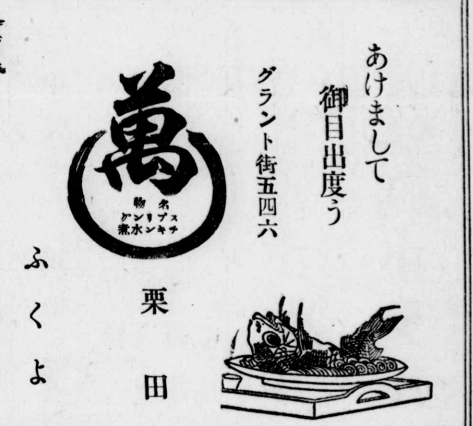 あけまして
御目出度う
グラント街五四六
萬
名物
スプリング
チキン水煮
栗田
ふくよ